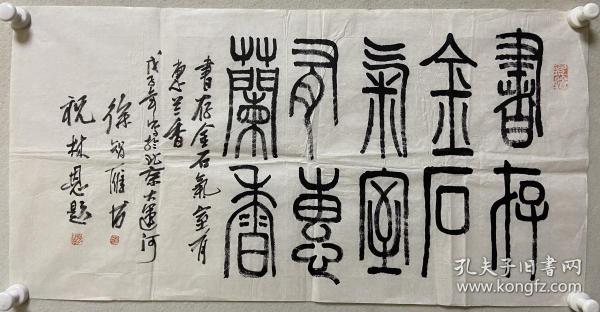 書存
金石
氣室
有惠
蘭香
書存金石氣室有
惠兰香
戊子年写於北京大运河
徐智雅书
祝林恩题
孔夫子旧书网
www.kongfz.com